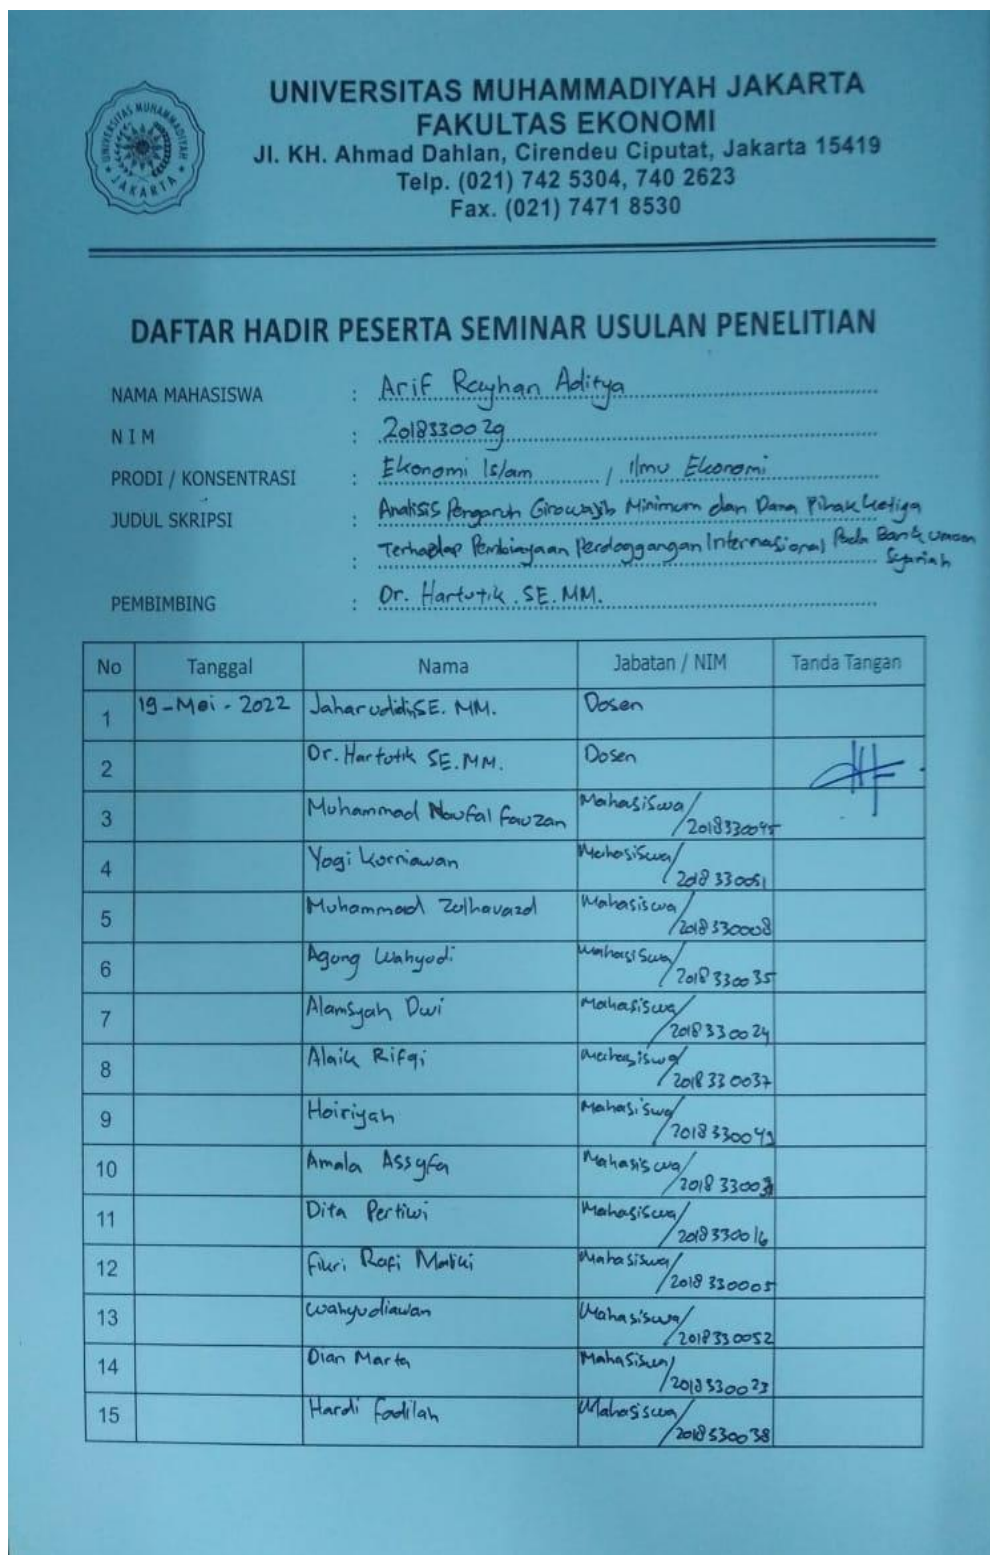 UNIVERSITAS MUHAMMADIYAH JAKARTA
FAKULTAS EKONOMI
Jl. KH. Ahmad Dahlan, Cirendeu Ciputat, Jakarta 15419
Telp. (021) 742 5304, 740 2623
Fax. (021) 7471 8530
UNIVERSITAS MUHAMMADIYAH JAKARTA
DAFTAR HADIR PESERTA SEMINAR USULAN PENELITIAN
NAMA MAHASISWA : Arif Rayhan Aditya
N I M : 2018330029
PRODI / KONSENTRASI : Ekonomi Islam / Ilmu Ekonomi
JUDUL SKRIPSI : Analisis Pengaruh Girowajib Minimum dan Dana Pihak ketiga
: Terhadap Pembiayaan Perdaggangan Internasional Pada Bank umum
Syariah
PEMBIMBING : Dr. Hartutik . SE. MM.
No Tanggal Nama Jabatan / NIM Tanda Tangan
1 19-Mei-2022 Jaharuddin, SE. MM. Dosen
2 Dr. Hartutik SE. MM. Dosen
3 Muhammad Naufal Fauzan Mahasiswa/2018330045
4 Yogi Kurniawan Mahasiswa/2018330051
5 Muhammad Mahasiswa/2018330008
6 Agung Wahyudi Mahasiswa/2018330035
7 Alamsyah Dwi Mahasiswa/2018330024
8 Alaik Rifqi Mahasiswa/2018330037
9 Hoiriyah Mahasiswa/2018330049
10 Amala Assyfa Mahasiswa/
11 Dita Pertiwi Mahasiswa/2018330016
12 Fikri Rafi Maliki Mahasiswa/2018330005
13 Wahyudiawan Mahasiswa/2018330052
14 Dian Marta Mahasiswa/2018330023
15 Hardi Fadilah Mahasiswa/2018330038